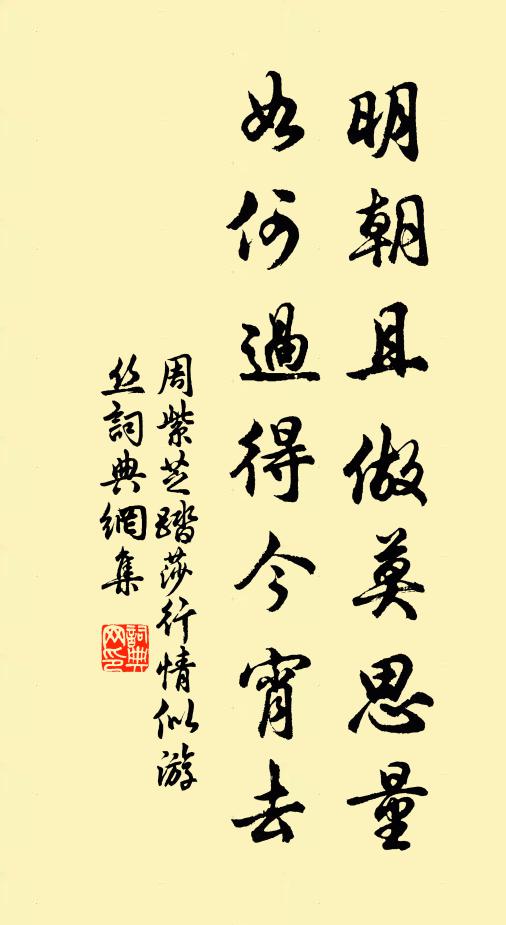 明朝且做莫思量
如何過得今宵去
周紫芝踏莎行情似游
丝詞典網集
詞典
网印